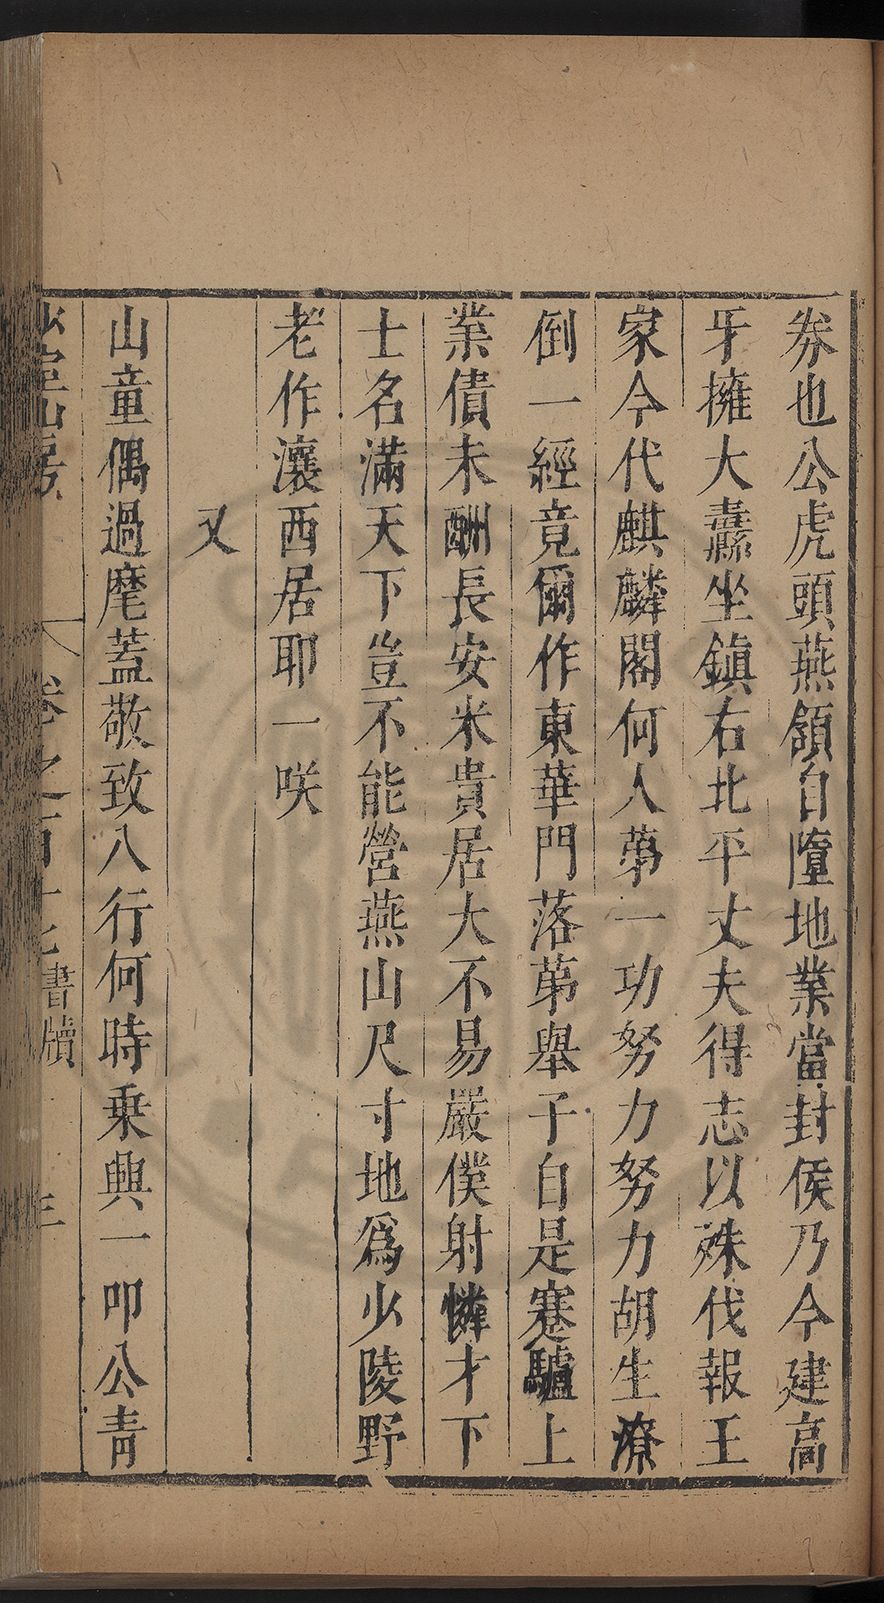 券也公虎頭燕頷自墮地業當封侯乃今建高
牙擁大纛坐鎮右北平丈夫得志以殊伐報王
家今代麒麟閣何人第一功努力努力胡生潦
倒一經竟爾作東華門落第舉子自是蹇驢上
業債未酬長安米貴居大不易嚴僕射憐才下
士名滿天下豈不能營燕山尺寸地爲少陵野
老作瀼西居耶一咲
又
山童偶過麾蓋敬致八行何時乗興一叩公青
少室山房 卷之百十七 書牘 三